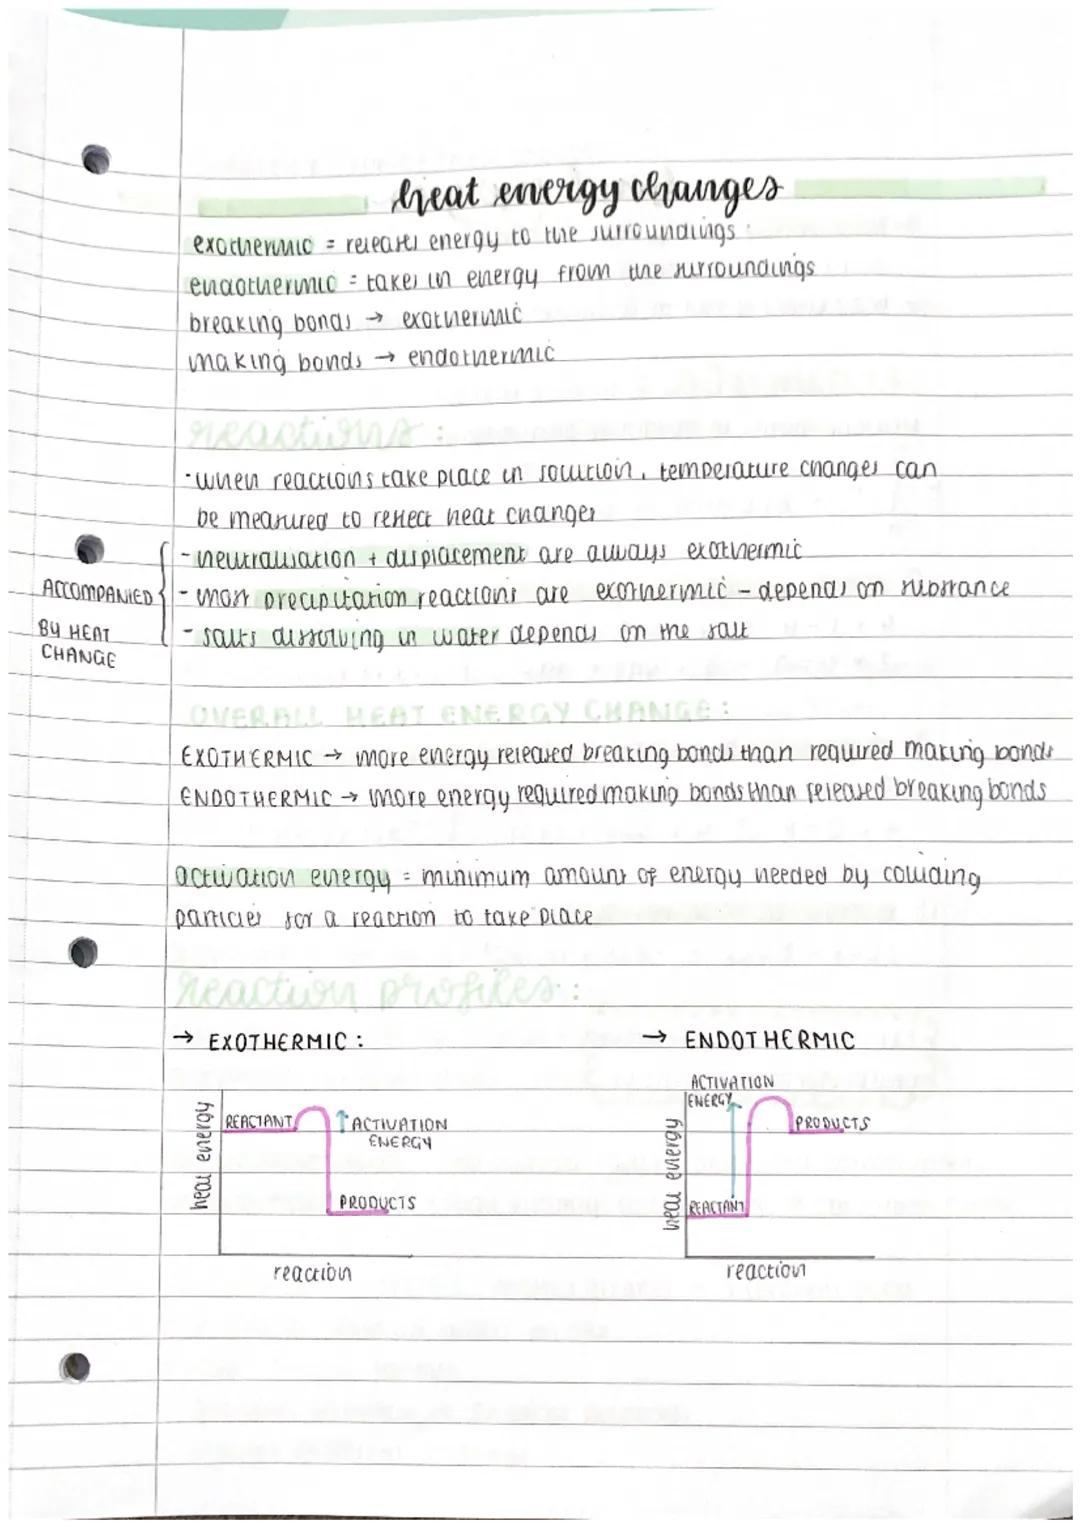 heat energy changes
exothermic = releases energy to the surroundings
endothermic = takes in energy from the surroundings
breaking bonds → exothermic
making bonds → endothermic
reactions:
- when reactions take place in solution, temperature changes can
be measured to reflect heat changes
- neutralisation + displacement are always exothermic
- most precipitation reactions are exothermic - depends on substance
- salts dissolving in water depends on the salt
ACCOMPANIED
BY HEAT
CHANGE
OVERALL HEAT ENERGY CHANGE:
EXOTHERMIC → more energy released breaking bonds than required making bonds
ENDOTHERMIC → more energy required making bonds than released breaking bonds
activation energy = minimum amount of energy needed by colliding
particles for a reaction to take place
reaction profiles:
→ EXOTHERMIC:
heat energy
REACTANT
ACTIVATION
ENERGY
PRODUCTS
reaction
→ ENDOTHERMIC
ACTIVATION
ENERGY
heat energy
PRODUCTS
REACTANT
reaction